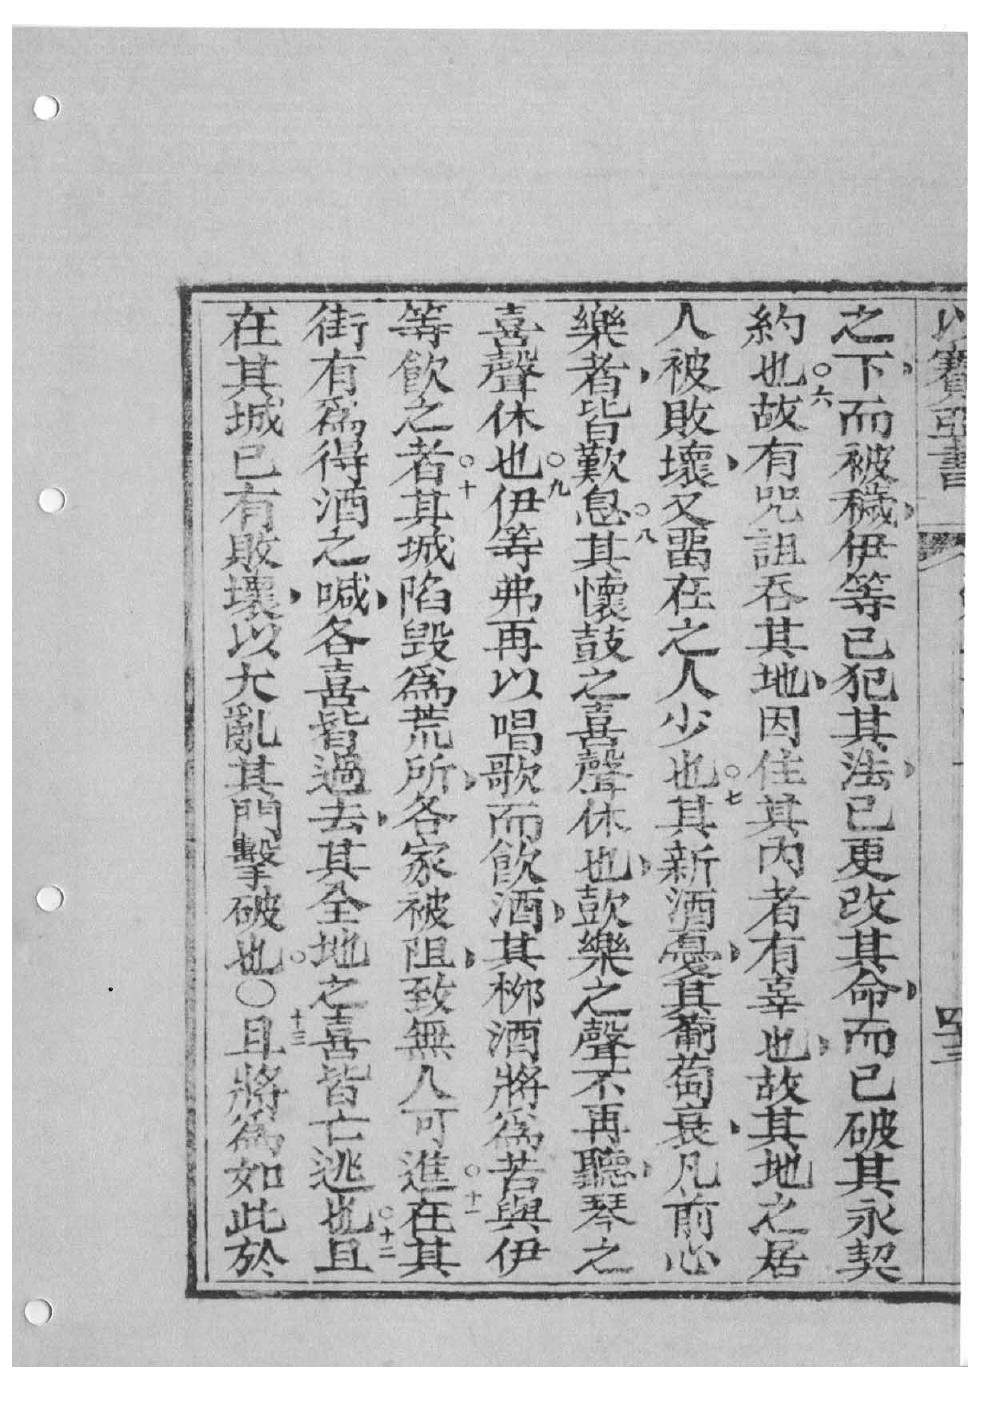 以賽亞書
四十三
之下而被穢伊等已犯其法已更改其命而已破其永契
約也○六故有咒詛吞其地因住其內者有辜也故其地之居
人被敗壞又畱在之人少也○七其新酒憂其葡萄衰凡前心
樂者皆歎息○八其懷鼓之喜聲休也歡樂之聲不再聽琴之
喜聲休也○九伊等弗再以唱歌而飲酒其梛酒將爲苦與伊
等飲之者○十其城陷毀爲荒所各家被阻致無人可進○十一在其
街有爲得酒之喊各喜皆過去其全地之喜皆亡逃也○十二且
在其城已有敗壞以大亂其門擊破也○○十三且將爲如此於